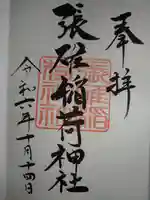 奉拝
張碓稲荷神社
令和六年十月十四日